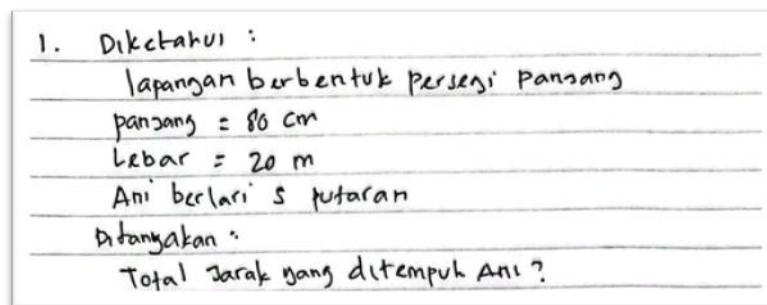 1. Diketahui :
lapangan berbentuk persegi panjang
panjang = 80 cm
Lebar = 20 m
Ani berlari 5 putaran
Ditanyakan :
Total Jarak yang ditempuh Ani ?